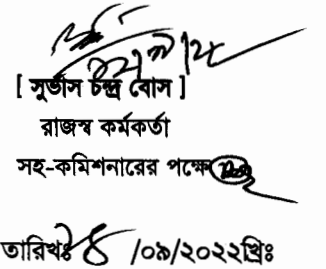 [ সুভাস চন্দ্র বোস ]
রাজস্ব কর্মকর্তা
সহ-কমিশনারের পক্ষে
তারিখঃ /০৯/২০২২খ্রিঃ